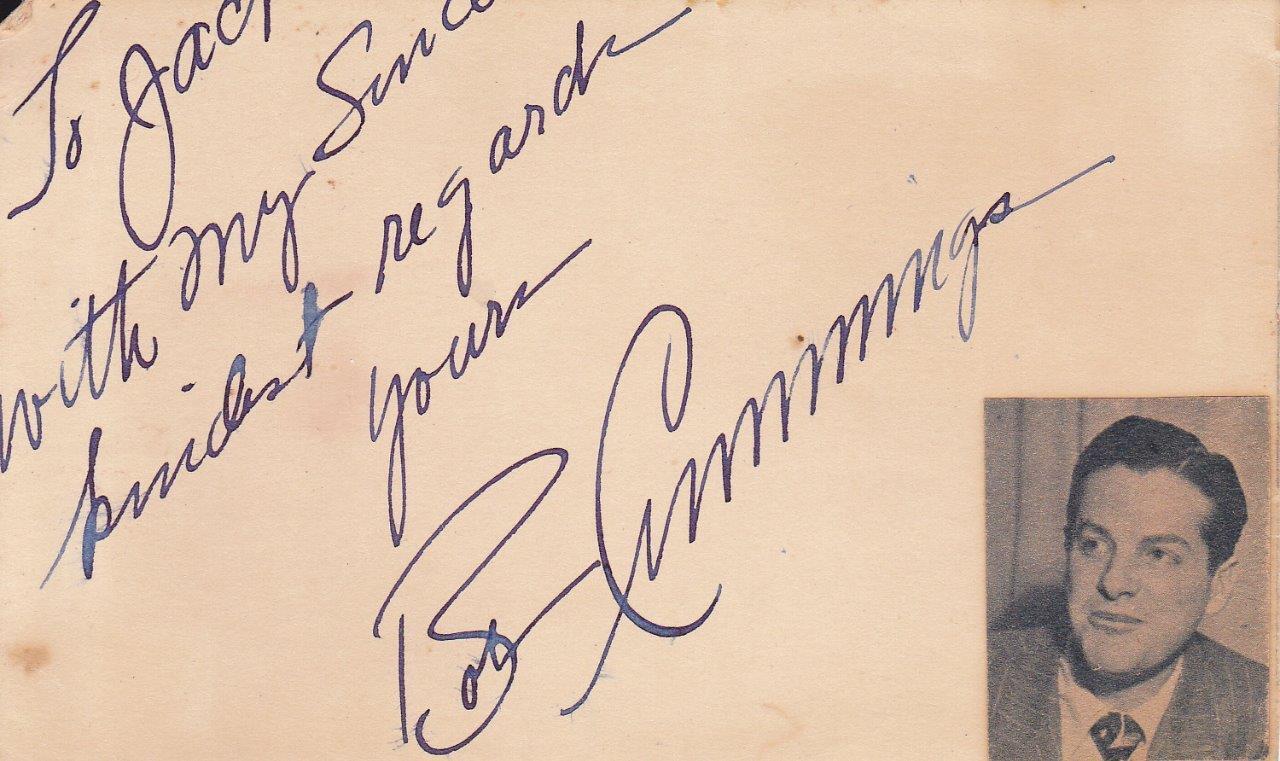 To Jack
with my Since
kindest regards
yours
Bob Cummings